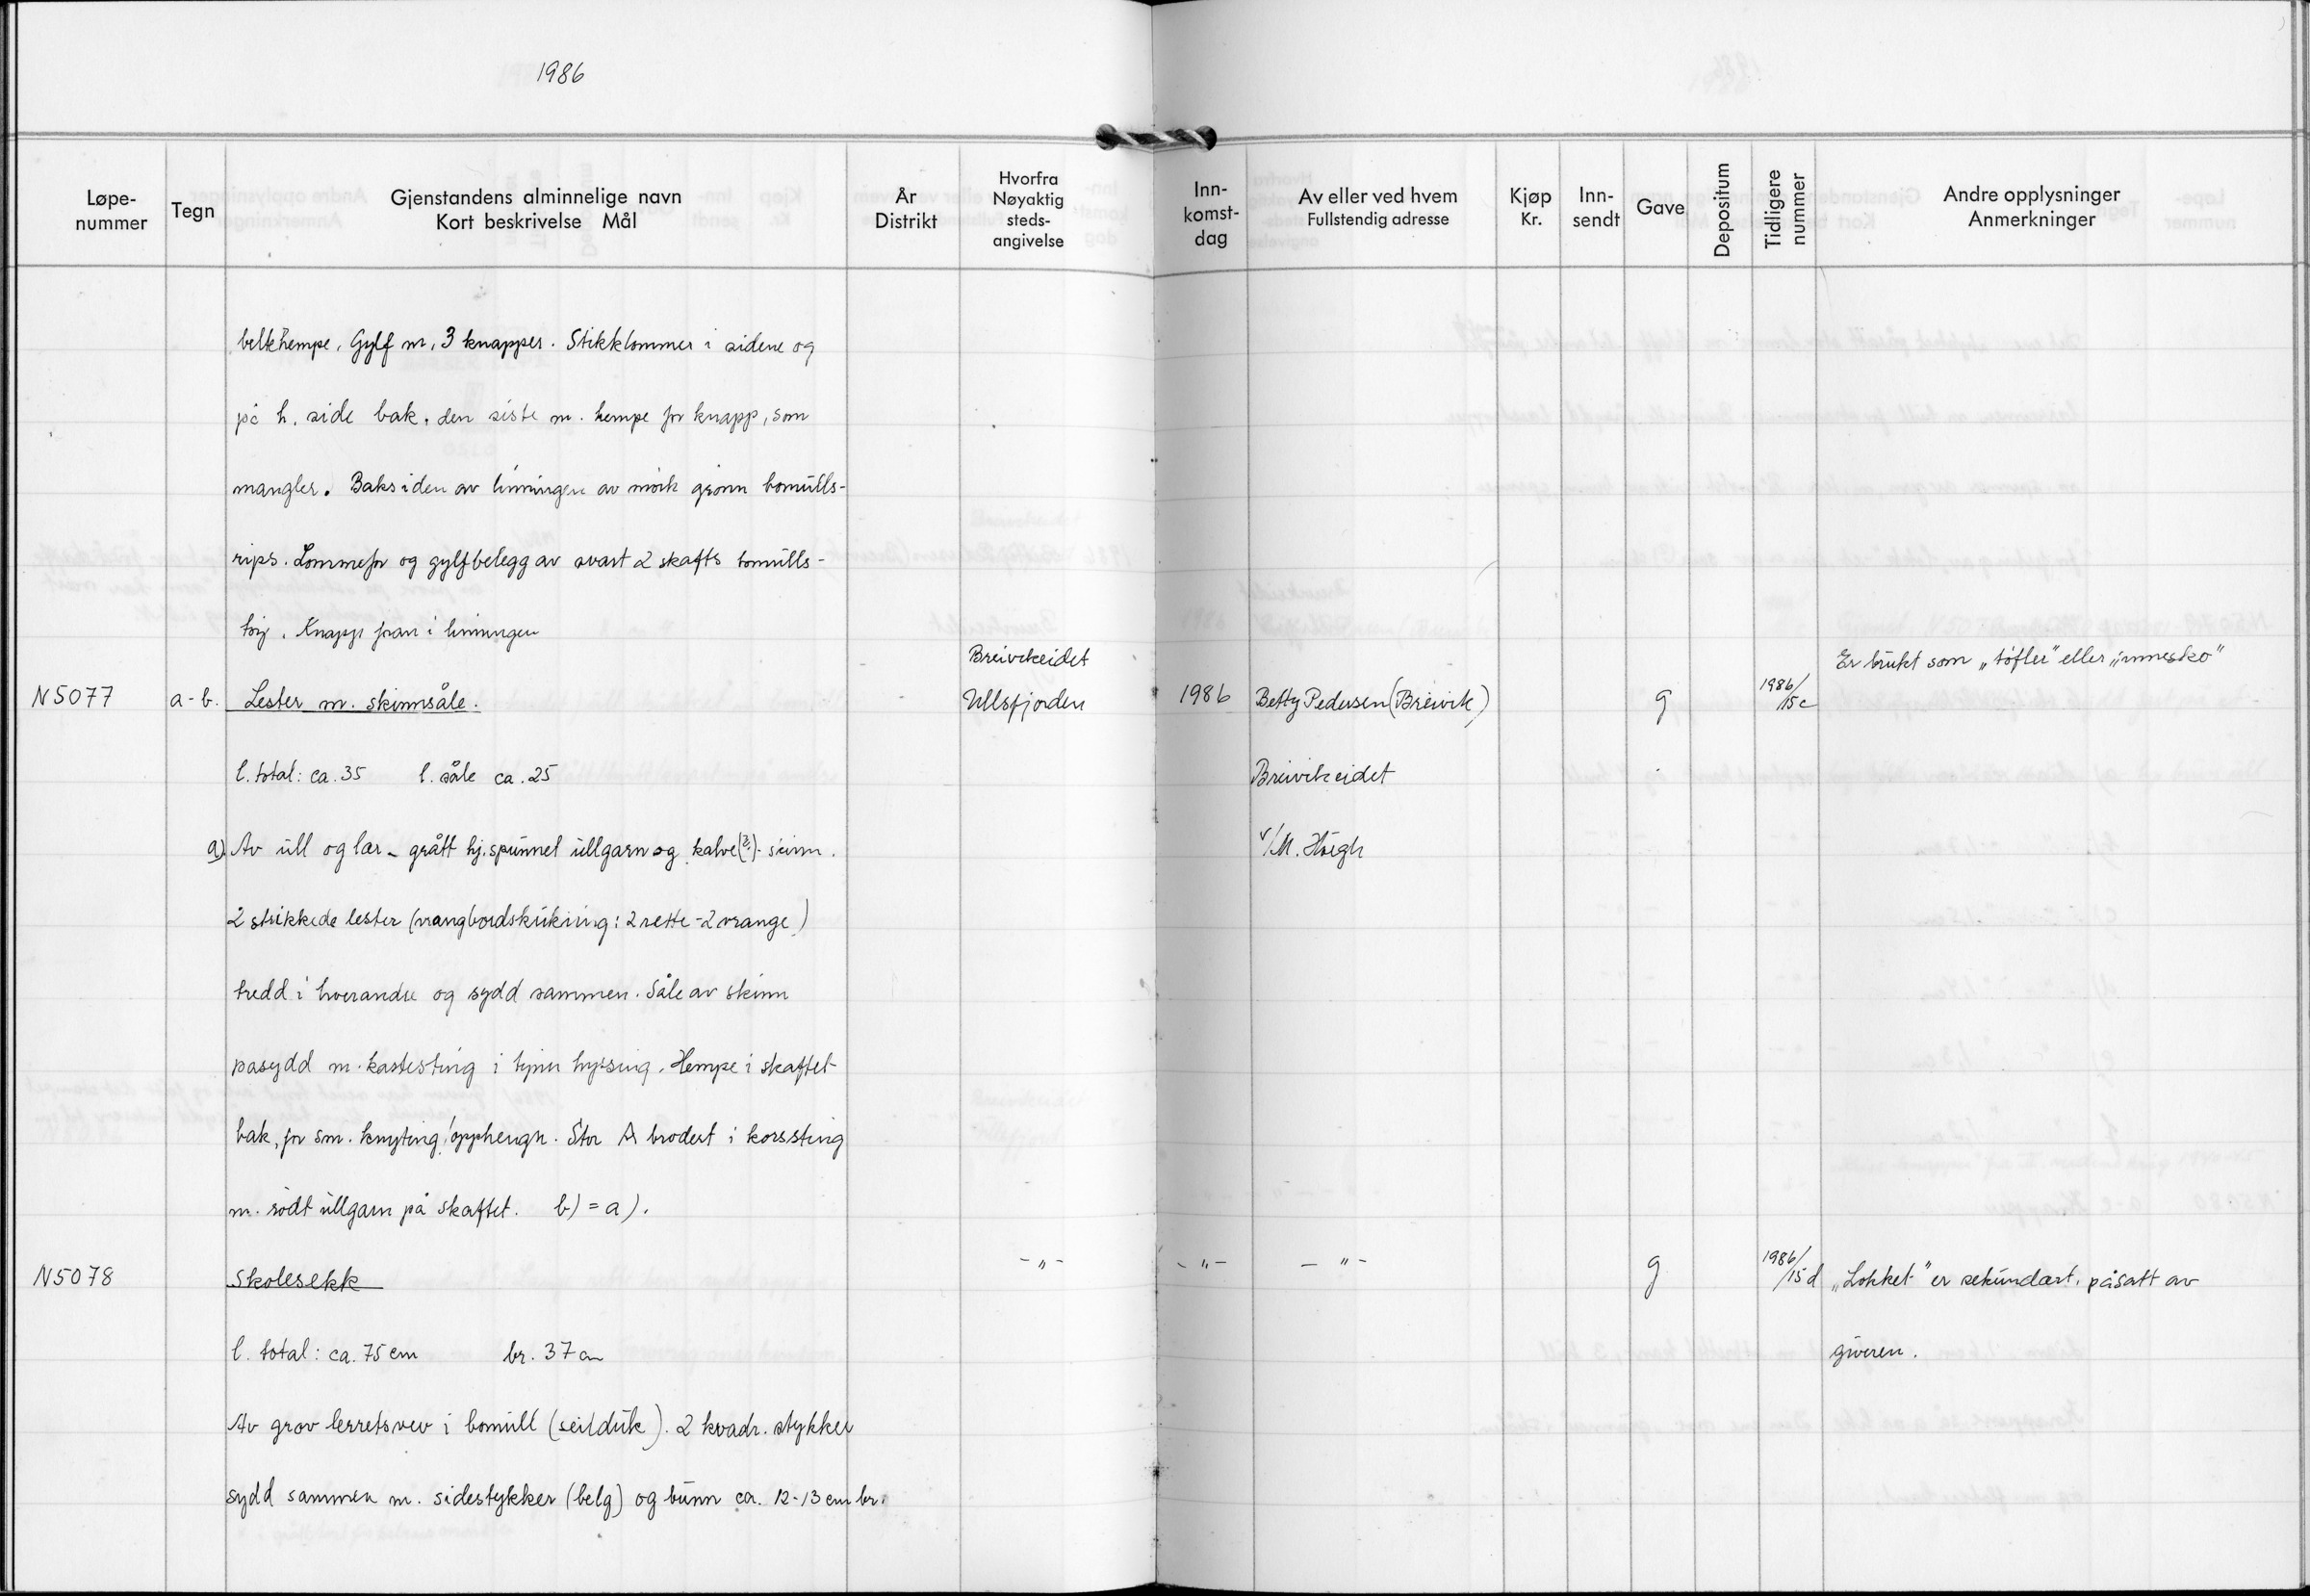 1986
Løpe-
nummer
Tegn
Gjenstandens alminnelige navn
Kort beskrivelse Mål
År
Distrikt
Hvorfra
Nøyaktig
steds-
angivelse
Inn-
komst-
dag
Av eller ved hvem
Fullstendig adresse
Kjøp
Kr.
Inn-
sendt
Gave
Depositum
Tidligere
nummer
Andre opplysninger
Anmerkninger
beltehempe. Gylf m. 3 knapper. Stikklommer i sidene og
på h. side bak, den siste m. hempe for knapp, som
mangler. Baksiden av linningen av mörk grönn bomulls-
rips. Lommefor og gylfbelegg av svart 2 skafts bomulls-
töy. Knapp foran i linningen
Breivikeidet
Er brukt som „töfler" eller „innesko"
N5077 a-b. Lester m. skinnsåle. Ullsfjorden 1986 Betty Pedersen (Breivik) g 1986/15c
l. total: ca. 35 l. såle ca. 25 Breivikeidet
a) Av ull og lær - grått hj.spunnet ullgarn og kalve(?)-skinn. v/M. Höegh
2 strikkede lester (vrangbordstrikking: 2 rette - 2 vrange)
tredd i hverandre og sydd sammen. Såle av skinn
påsydd m. kastesting i tynn hyssing. Hempe i skaftet
bak, for sm. knyting/oppheng. Stor A brodert i korssting
m. rödt ullgarn på skaftet. b) = a).
N5078 Skolesekk -"- -"- -"- g 1986/15d „Lokket" er sekundært, påsatt av
l. total: ca. 75 cm br. 37 cm giveren.
Av grov lerretsvev i bomull (seilduk). 2 kvadr. stykker
sydd sammen m. sidestykker (belg) og bunn ca. 12-13 cm br.